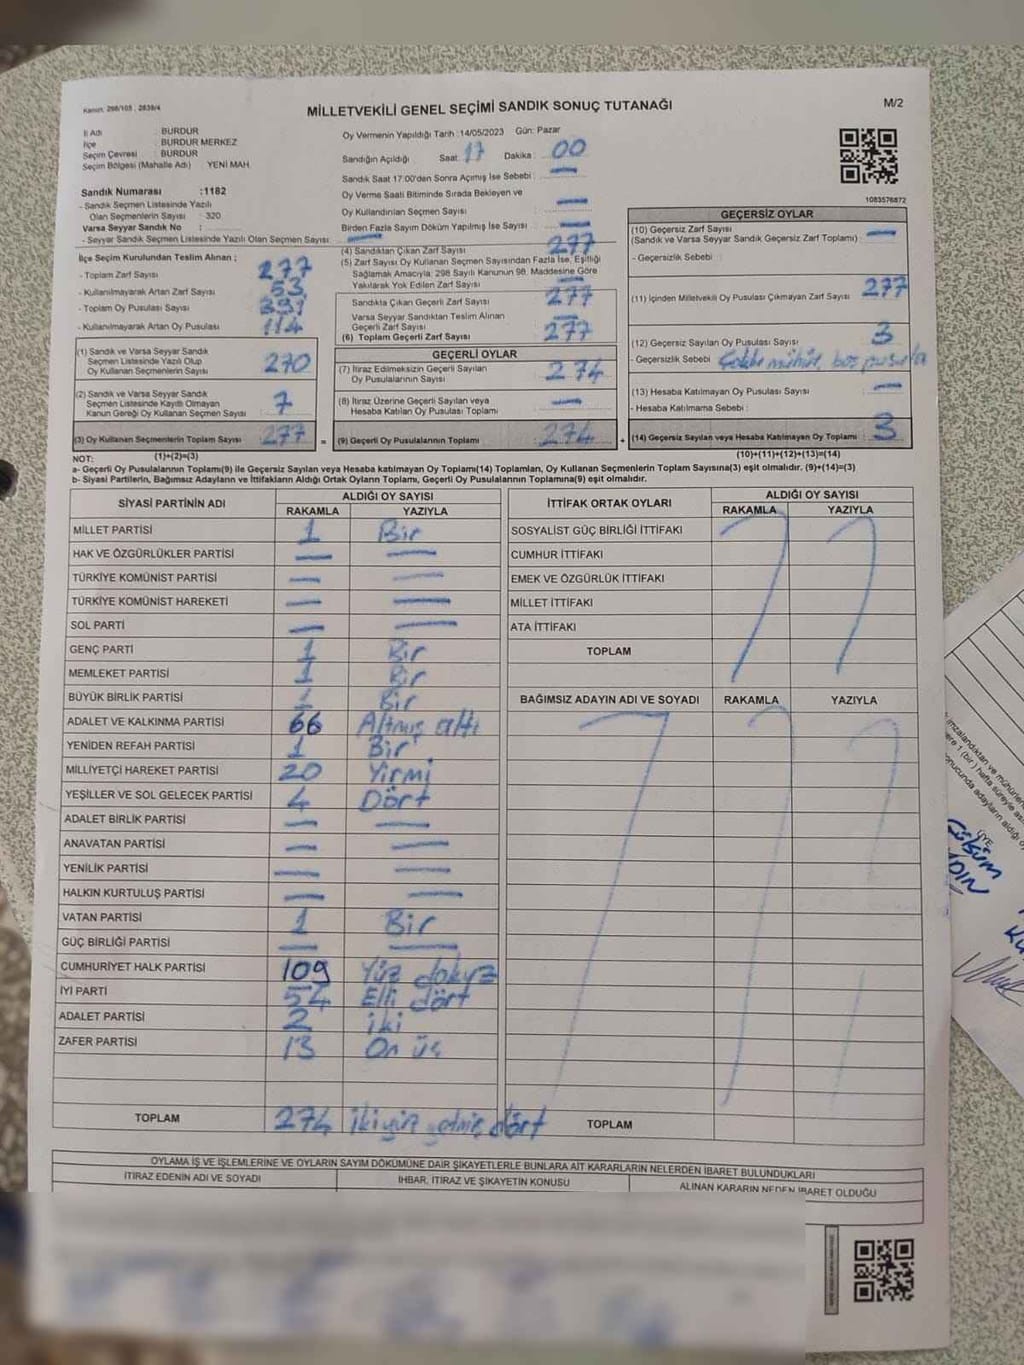 Kanun: 298/105 , 2839/4
MİLLETVEKİLİ GENEL SEÇİMİ SANDIK SONUÇ TUTANAĞI
M/2
İl Adı : BURDUR
İlçe : BURDUR MERKEZ
Seçim Çevresi : BURDUR
Seçim Bölgesi (Mahalle Adı) : YENİ MAH.
Sandık Numarası :1182
- Sandık Seçmen Listesinde Yazılı
Olan Seçmenlerin Sayısı : 320
Varsa Seyyar Sandık No :
- Seyyar Sandık Seçmen Listesinde Yazılı Olan Seçmen Sayısı: —
Oy Vermenin Yapıldığı Tarih :14/05/2023 Gün: Pazar
Sandığın Açıldığı Saat: 17 Dakika : 00
Sandık Saat 17:00'den Sonra Açımış İse Sebebi : —
Oy Verme Saati Bitiminde Sırada Bekleyen ve
Oy Kullandırılan Seçmen Sayısı : —
Birden Fazla Sayım Döküm Yapılmış İse Sayısı : —
1083576872
İlçe Seçim Kurulundan Teslim Alınan ;
- Toplam Zarf Sayısı 277
- Kullanılmayarak Artan Zarf Sayısı 53
- Toplam Oy Pusulası Sayısı 391
- Kullanılmayarak Artan Oy Pusulası 114
(1) Sandık ve Varsa Seyyar Sandık
Seçmen Listesinde Yazılı Olup
Oy Kullanan Seçmenlerin Sayısı 270
(2) Sandık ve Varsa Seyyar Sandık
Seçmen Listesinde Kayıtlı Olmayan
Kanun Gereği Oy Kullanan Seçmen Sayısı 7
(3) Oy Kullanan Seçmenlerin Toplam Sayısı 277 =
(1)+(2)=(3)
(4) Sandıktan Çıkan Zarf Sayısı 277
(5) Zarf Sayısı Oy Kullanan Seçmen Sayısından Fazla İse, Eşitliği
Sağlamak Amacıyla; 298 Sayılı Kanunun 98. Maddesine Göre
Yakılarak Yok Edilen Zarf Sayısı —
Sandıkta Çıkan Geçerli Zarf Sayısı 277
Varsa Seyyar Sandıktan Teslim Alınan
Geçerli Zarf Sayısı —
(6) Toplam Geçerli Zarf Sayısı 277
GEÇERLİ OYLAR
(7) İtiraz Edilmeksizin Geçerli Sayılan
Oy Pusulalarının Sayısı 274
(8) İtiraz Üzerine Geçerli Sayılan veya
Hesaba Katılan Oy Pusulası Toplamı —
(9) Geçerli Oy Pusulalarının Toplamı 274 +
GEÇERSİZ OYLAR
(10) Geçersiz Zarf Sayısı
(Sandık ve Varsa Seyyar Sandık Geçersiz Zarf Toplamı) : —
- Geçersizlik Sebebi :
(11) İçinden Milletvekili Oy Pusulası Çıkmayan Zarf Sayısı 277
(12) Geçersiz Sayılan Oy Pusulası Sayısı : 3
- Geçersizlik Sebebi : mühür, boş pusula
(13) Hesaba Katılmayan Oy Pusulası Sayısı : —
- Hesaba Katılmama Sebebi :
(14) Geçersiz Sayılan veya Hesaba Katılmayan Oy Toplamı 3
(10)+(11)+(12)+(13)=(14)
NOT:
a- Geçerli Oy Pusulalarının Toplamı(9) ile Geçersiz Sayılan veya Hesaba katılmayan Oy Toplamı(14) Toplamları, Oy Kullanan Seçmenlerin Toplam Sayısına(3) eşit olmalıdır. (9)+(14)=(3)
b- Siyasi Partilerin, Bağımsız Adayların ve İttifakların Aldığı Ortak Oyların Toplamı, Geçerli Oy Pusulalarının Toplamına(9) eşit olmalıdır.
SİYASİ PARTİNİN ADI ALDIĞI OY SAYISI
RAKAMLA YAZIYLA
MİLLET PARTİSİ 1 Bir
HAK VE ÖZGÜRLÜKLER PARTİSİ — —
TÜRKİYE KOMÜNİST PARTİSİ — —
TÜRKİYE KOMÜNİST HAREKETİ — —
SOL PARTİ — —
GENÇ PARTİ 1 Bir
MEMLEKET PARTİSİ 1 Bir
BÜYÜK BİRLİK PARTİSİ 1 Bir
ADALET VE KALKINMA PARTİSİ 66 Altmış altı
YENİDEN REFAH PARTİSİ 1 Bir
MİLLİYETÇİ HAREKET PARTİSİ 20 Yirmi
YEŞİLLER VE SOL GELECEK PARTİSİ 4 Dört
ADALET BİRLİK PARTİSİ — —
ANAVATAN PARTİSİ — —
YENİLİK PARTİSİ — —
HALKIN KURTULUŞ PARTİSİ — —
VATAN PARTİSİ 1 Bir
GÜÇ BİRLİĞİ PARTİSİ — —
CUMHURİYET HALK PARTİSİ 109 Yüz dokuz
İYİ PARTİ 54 Elli dört
ADALET PARTİSİ 2 iki
ZAFER PARTİSİ 13 On üç
TOPLAM 274 ikiyüz yetmiş dört
İTTİFAK ORTAK OYLARI ALDIĞI OY SAYISI
RAKAMLA YAZIYLA
SOSYALİST GÜÇ BİRLİĞİ İTTİFAKI
CUMHUR İTTİFAKI
EMEK VE ÖZGÜRLÜK İTTİFAKI
MİLLET İTTİFAKI
ATA İTTİFAKI
TOPLAM
BAĞIMSIZ ADAYIN ADI VE SOYADI RAKAMLA YAZIYLA
TOPLAM
OYLAMA İŞ VE İŞLEMLERİNE VE OYLARIN SAYIM DÖKÜMÜNE DAİR ŞİKAYETLERLE BUNLARA AİT KARARLARIN NELERDEN İBARET BULUNDUKLARI
İTİRAZ EDENİN ADI VE SOYADI İHBAR, İTİRAZ VE ŞİKAYETİN KONUSU ALINAN KARARIN NEDEN İBARET OLDUĞU
imzalandıktan ve mühürlen
1 (bir) hafta süreyle
onucunda adayların aldığı
ÜYE